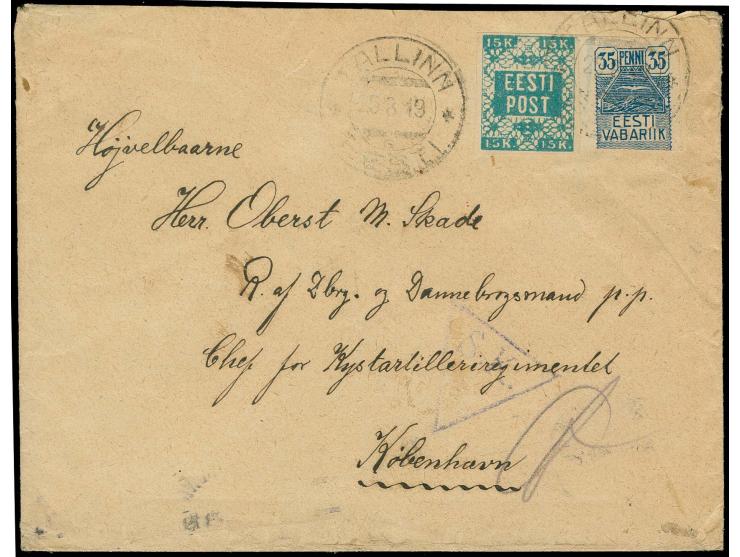 TALLINN
EESTI
15 K. 15 K.
EESTI
POST
15 K. 15 K.
TALLINN
35 PENNI 35
EESTI
VABARIIK
Højvelbaarne
Herr. Oberst M. Skade
R. af Dbrg. og Dannebrogsmand p.p.
Chef for Kystartilleriregimentet
S.K.
København